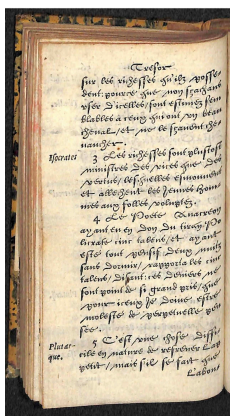 Tresor
sur les richesses qu'ilz posse-
dent: pource que non sçachans
vser d'icelles, sont estimez sem
blables à ceux qui ont vn beau
cheual, et ne le sçauent che-
uaucher.
Isocrates
3 Les richesses sont plustost
ministres des vices que des
vertus, lesquelles esmouuent
et allechent les ieunes hom-
mes aux folles voluptez.
4 Le Poete Anacreon
ayant eu en don du tirãt Po
licrate cinc talens, et ayant
esté tout pensif deux nuits
sans dormir, rapporta les cinc
talens, disant: ces deniers ne
sont point de si grand pris, que
pour iceux ie doiue estre
moleste de perpetuelle pen-
sée.
Plutar-
que.
5 C'est vne chose diffi-
cile en nature de refrener l'ap
petit, mais s'il se fait que
l'abon-